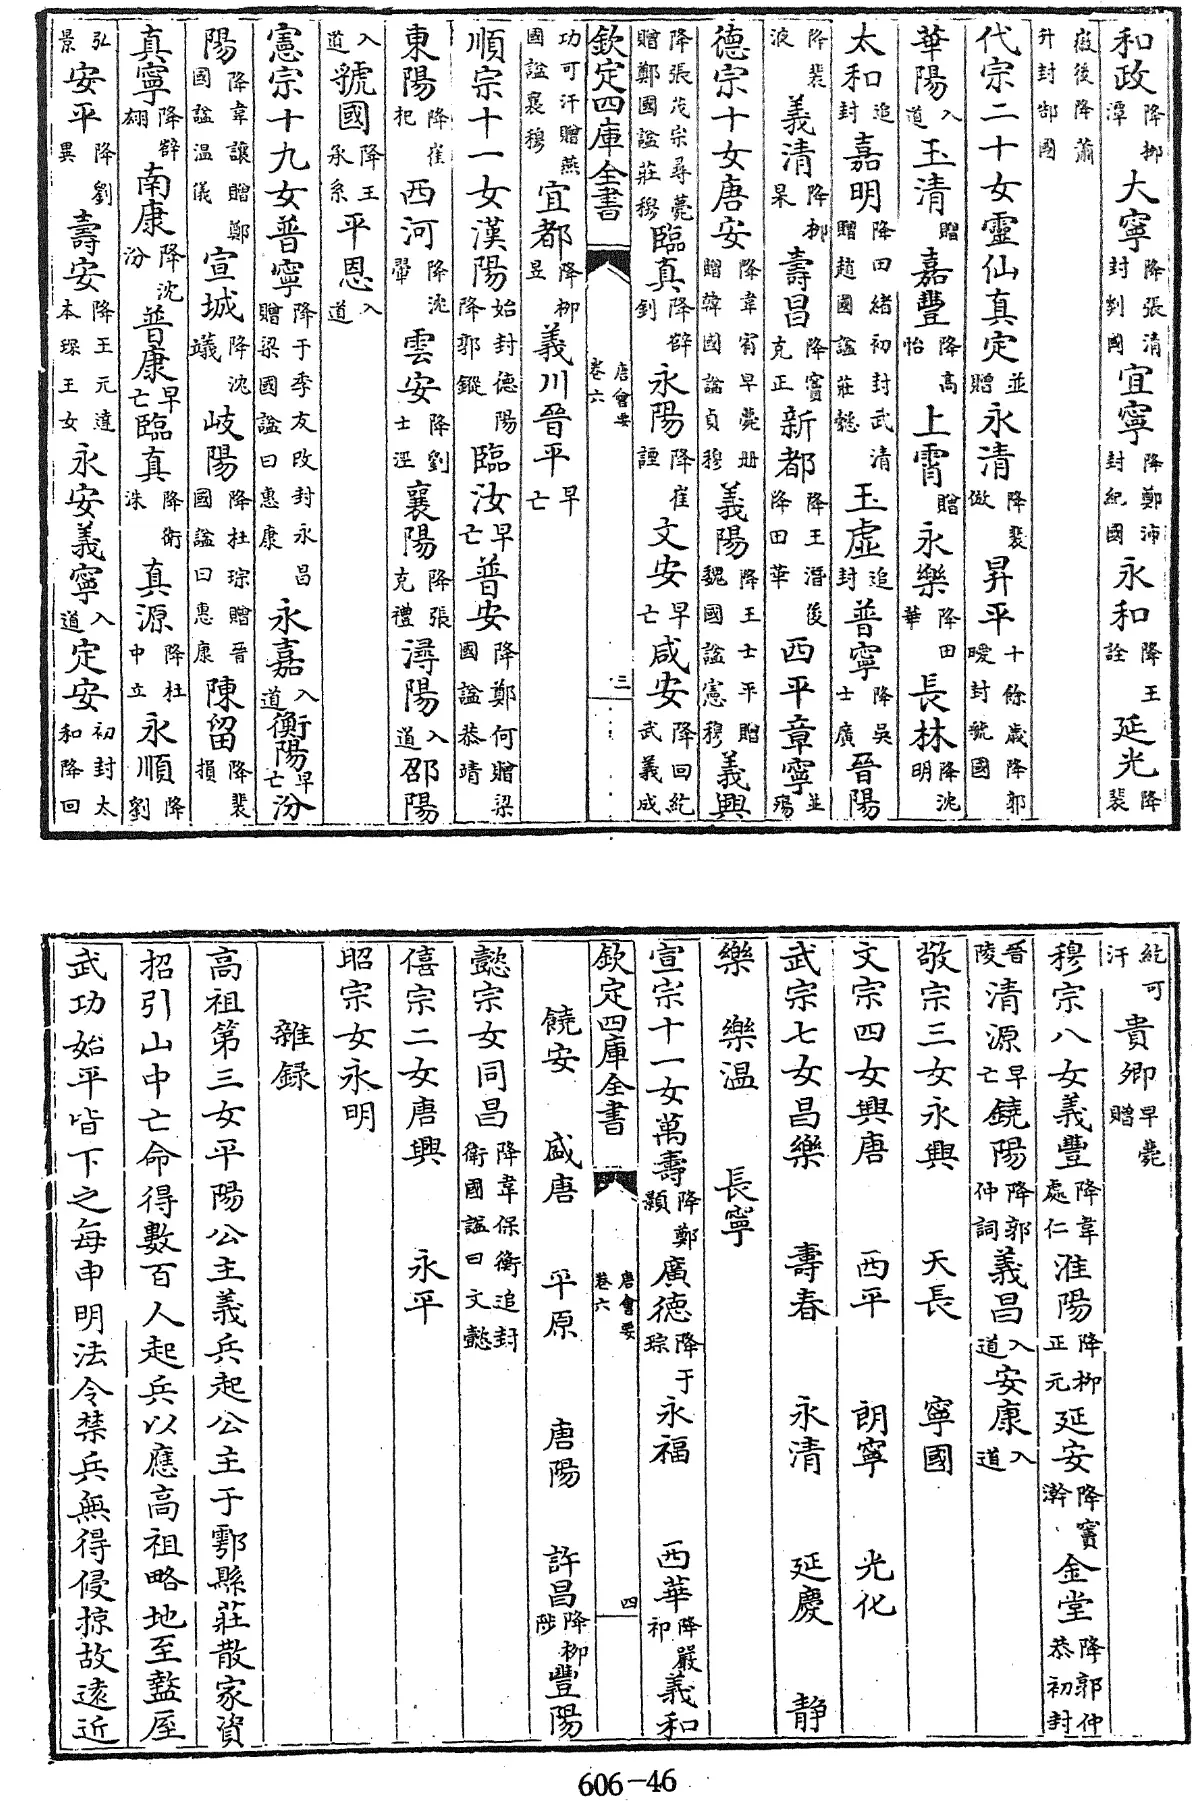 和政降柳潭大寧降張清封剡國宜寧降鄭沛封紀國永和降王詮延光降裴
徽後降蕭升封郜國
代宗二十女靈仙真定並贈永清降裴倣昇平十餘歲降郭曖封虢國
華陽入道玉清贈嘉豐降高怡上霄贈永樂降田華長林降沈明
太和追封嘉明降田緒初封武清贈趙國諡莊懿玉虛追封普寧降吳士廣晉陽
降裴液義清降柳杲壽昌降竇克正新都降王潛後降田華西平章寧並殤
德宗十女唐安降韋宥早薨册贈韓國諡貞穆義陽降王士平贈魏國諡憲穆義興
降張茂宗尋薨贈鄭國諡莊穆臨真降薛釗永陽降崔諲文安早亡咸安降回紇武義成
欽定四庫全書 唐會要卷六 三
功可汗贈燕國諡襄穆宜都降柳昱義川晉平早亡
順宗十一女漢陽始封德陽降郭鏦臨汝早亡普安降鄭何贈梁國諡恭靖
東陽降崔杞西河降沈翬雲安降劉士涇襄陽降張克禮潯陽入道邵陽
入道虢國降王承系平恩入道
憲宗十九女普寧降于季友改封永昌贈梁國諡曰惠康永嘉入道衡陽早亡汾
陽降韋讓贈鄭國諡溫儀宣城降沈岐陽降杜琮贈晉國諡曰惠康陳留降裴損
真寧降薛翃南康降沈汾普康早亡臨真降衛洙真源降杜中立永順降劉
弘景安平降劉異壽安降王元逵本琛王女永安義寧入道定安初封太和降回
紇可汗貴卿早薨贈
穆宗八女義豐降韋處仁淮陽降柳正元延安降竇澣金堂降郭仲恭初封
晉陵清源早亡饒陽降郭仲詞義昌入道安康入道
敬宗三女永興 天長 寧國
文宗四女興唐 西平 朗寧 光化
武宗七女昌樂 壽春 永清 延慶 静
樂 樂溫 長寧
宣宗十一女萬壽降鄭顥廣德降于琮永福 西華降嚴祁義和
欽定四庫全書 唐會要卷六 四
饒安 盛唐 平原 唐陽 許昌降柳陟豐陽
懿宗女同昌降韋保衡追封衛國諡曰文懿
僖宗二女唐興 永平
昭宗女永明
雜録
高祖第三女平陽公主義兵起公主于鄠縣莊散家資
招引山中亡命得數百人起兵以應高祖略地至盩厔
武功始平皆下之每申明法令禁兵無得侵掠故遠近
606-46